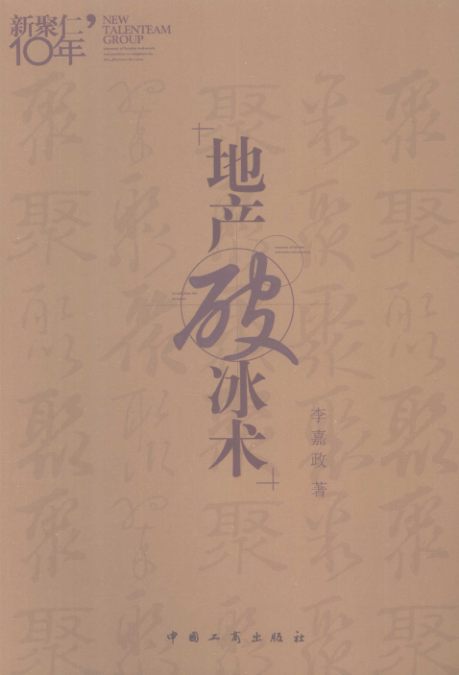 新聚仁’
10年
NEW
TALENTEAM
GROUP
地产破冰术
李嘉政 著
中国工商出版社